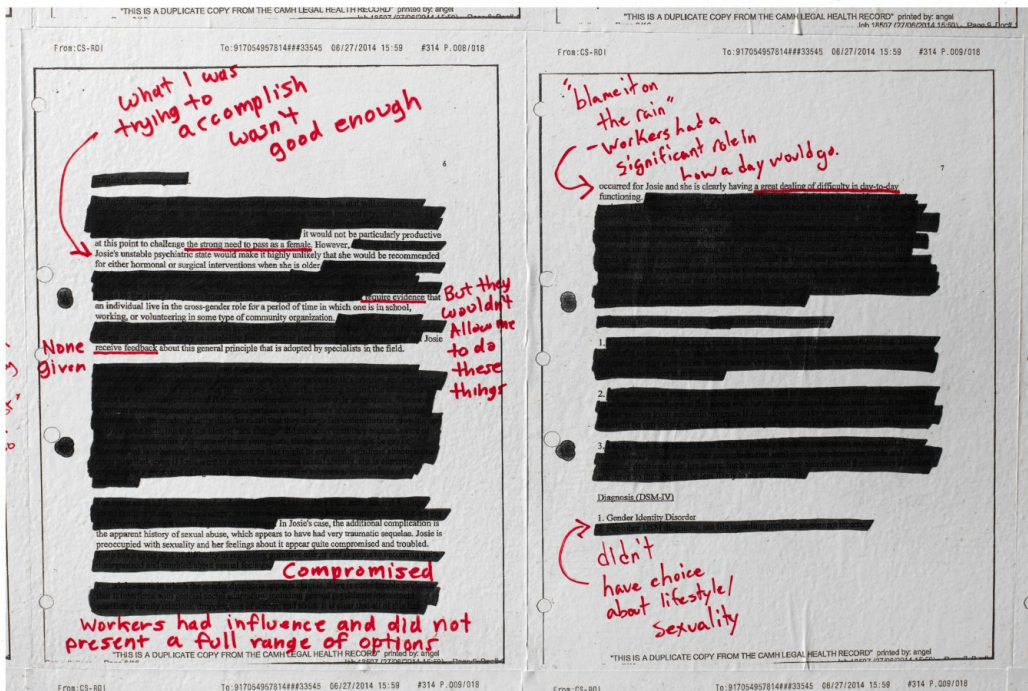 "THIS IS A DUPLICATE COPY FROM THE CAMH LEGAL HEALTH RECORD" printed by: angel
From:CS-ROI To:917054957814###33545 06/27/2014 15:59 #314 P.008/018
What I was
trying to
accomplish
wasn't
good enough
6
it would not be particularly productive
at this point to challenge the strong need to pass as a female. However,
Josie's unstable psychiatric state would make it highly unlikely that she would be recommended
for either hormonal or surgical interventions when she is older.
require evidence that
an individual live in the cross-gender role for a period of time in which one is in school,
working, or volunteering in some type of community organization.
Josie
receive feedback about this general principle that is adopted by specialists in the field.
But they
wouldn't
Allow me
to do
these
things
None
given
In Josie's case, the additional complication is
the apparent history of sexual abuse, which appears to have had very traumatic sequelae. Josie is
preoccupied with sexuality and her feelings about it appear quite compromised and troubled.
Compromised
Workers had influence and did not
present a full range of options
"THIS IS A DUPLICATE COPY FROM THE CAMH LEGAL HEALTH RECORD" printed by: angel
From:CS-ROI To:917054957814###33545 06/27/2014 15:59 #314 P.009/018
"THIS IS A DUPLICATE COPY FROM THE CAMH LEGAL HEALTH RECORD" printed by: angel
Job 18507 (27/06/2014 15:50)
From:CS-ROI To:917054957814###33545 06/27/2014 15:59 #314 P.009/018
"blame it on
the rain"
- workers had a
significant role in
how a day would go.
7
occurred for Josie and she is clearly having a great dealing of difficulty in day-to-day
functioning.
1.
2.
3.
Diagnosis (DSM-IV)
1. Gender Identity Disorder
didn't
have choice
about lifestyle/
sexuality
"THIS IS A DUPLICATE COPY FROM THE CAMH LEGAL HEALTH RECORD" printed by: angel
From:CS-ROI To:917054957814###33545 06/27/2014 15:59 #314 P.009/018